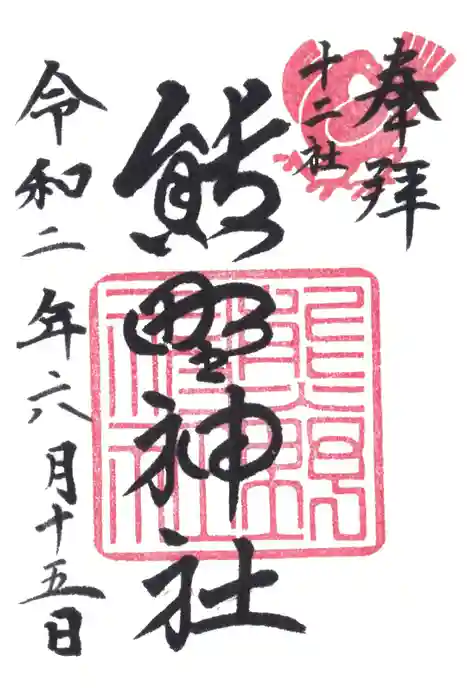 奉拝
十二社
熊野神社
令和二年六月十五日